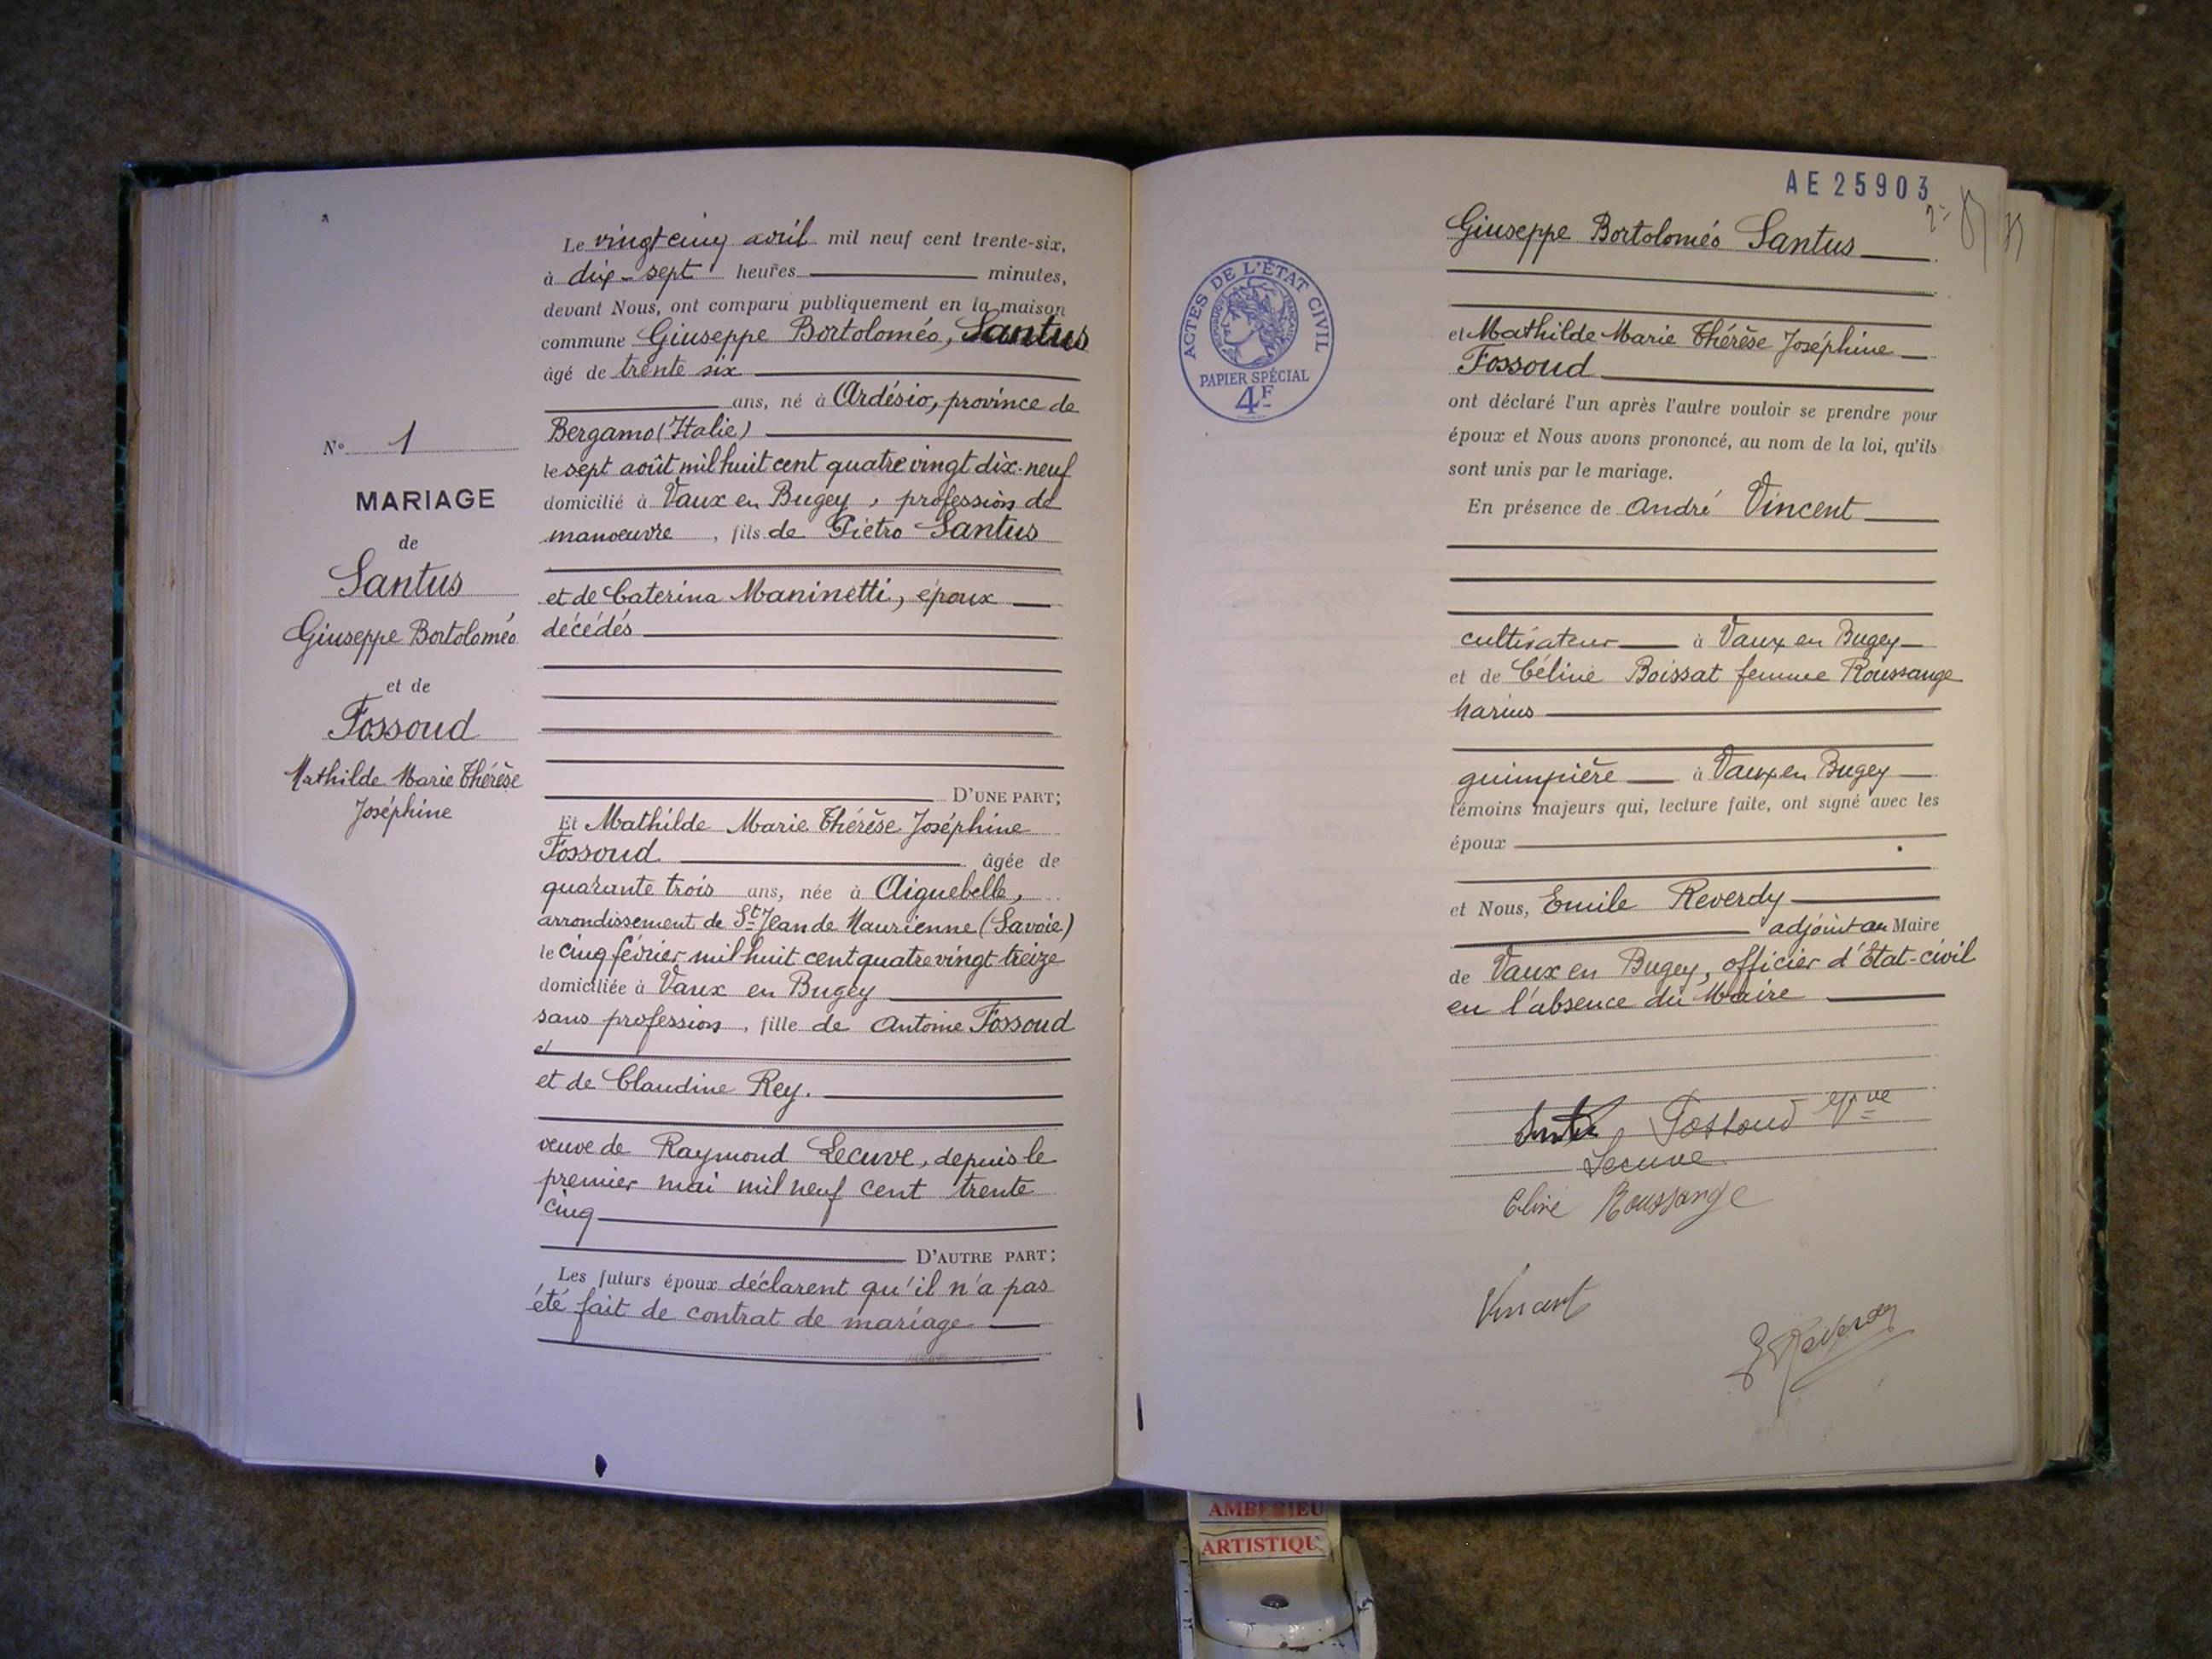 Le vingt cinq avril mil neuf cent trente-six,
à dix-sept heures minutes,
devant Nous, ont comparu publiquement en la maison
commune Giuseppe Bortoloméo, Santus
âgé de trente six
ans, né à Ardésio, province de
Bergamo (Italie)
le sept août mil huit cent quatre vingt dix-neuf
domicilié à Vaux en Bugey, profession de
manoeuvre, fils de Piétro Santus
et de Caterina Maninetti, époux
décédés
D'UNE PART;
N° 1
MARIAGE
de
Santus
Giuseppe Bortoloméo
et de
Fossoud
Mathilde Marie Thérèse
Joséphine
Et Mathilde Marie Thérèse Joséphine
Fossoud âgée de
quarante trois ans, née à Aiguebelle,
arrondissement de St Jean de Maurienne (Savoie)
le cinq février mil huit cent quatre vingt treize
domiciliée à Vaux en Bugey
sans profession, fille de Antoine Fossoud
et
et de Claudine Rey.
veuve de Raymond Lecuve, depuis le
premier mai mil neuf cent trente
cinq
D'AUTRE PART;
Les futurs époux déclarent qu'il n'a pas
été fait de contrat de mariage
AE 25903
ACTES DE L'ÉTAT CIVIL
RÉPUBLIQUE FRANÇAISE
PAPIER SPÉCIAL
4F
Giuseppe Bortoloméo Santus
et Mathilde Marie Thérèse Joséphine
Fossoud
ont déclaré l'un après l'autre vouloir se prendre pour
époux et Nous avons prononcé, au nom de la loi, qu'ils
sont unis par le mariage.
En présence de André Vincent
cultivateur à Vaux en Bugey
et de Céline Boissat femme Roussange
Marius
guimpière à Vaux en Bugey
témoins majeurs qui, lecture faite, ont signé avec les
époux
et Nous, Emile Reverdy
adjoint au Maire
de Vaux en Bugey, officier d'Etat-civil
en l'absence du Maire
Fossoud
Lecuve
Roussange
Vincent
E Reverdy
AMBERIEU
ARTISTIQU